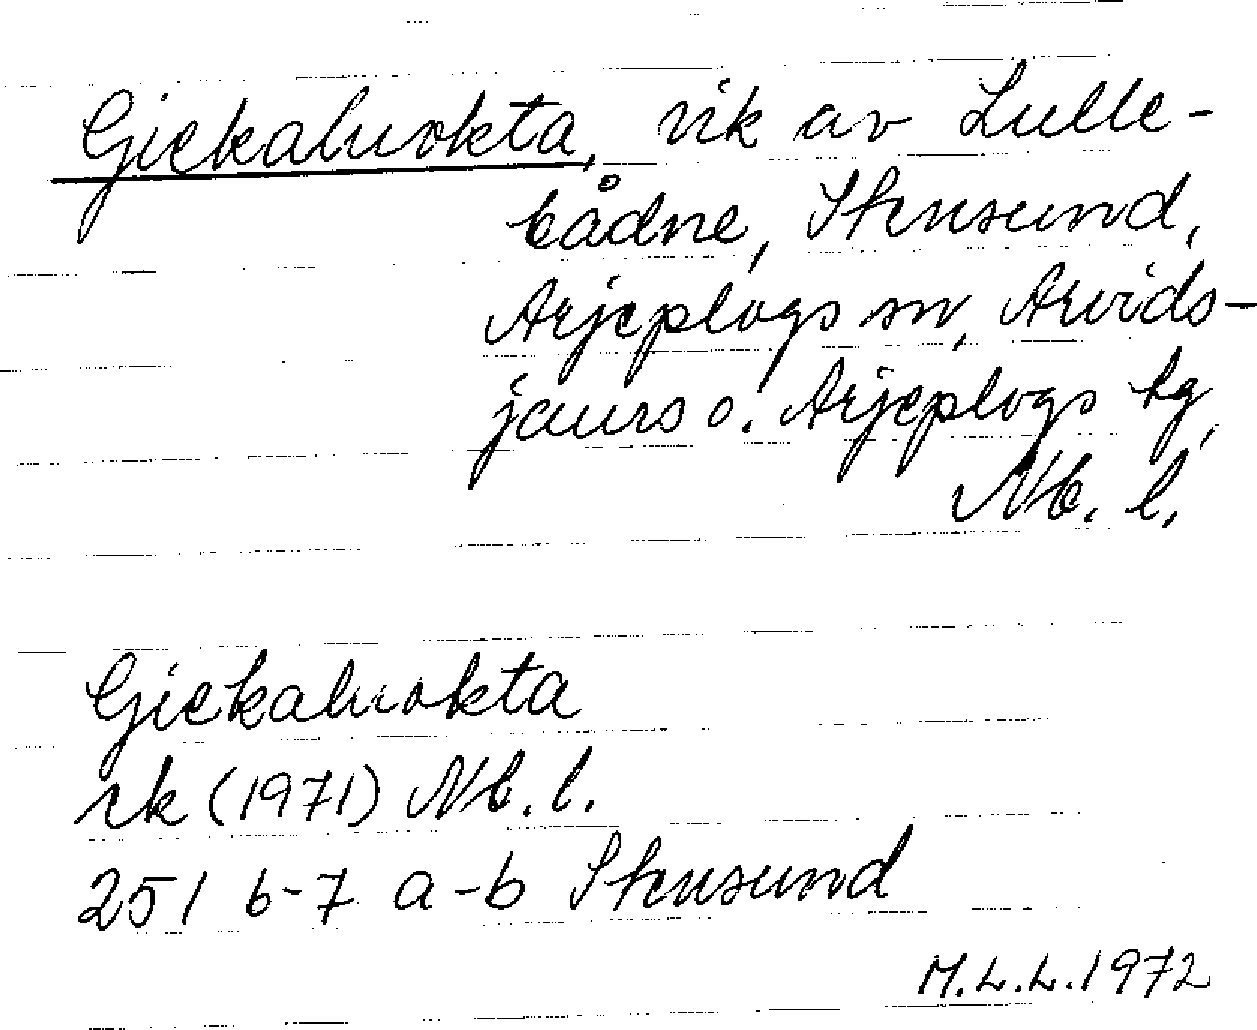 Gickaluokta, vik av Lulle-
bådne, Stensund,
Arjeplogs sn, Arvids-
jaurs o. Arjeplogs tg,
Nb. l.
Gickaluokta
rk (1971) Nb. l.
251 6-7 a-b Stensund
M.L.L. 1972